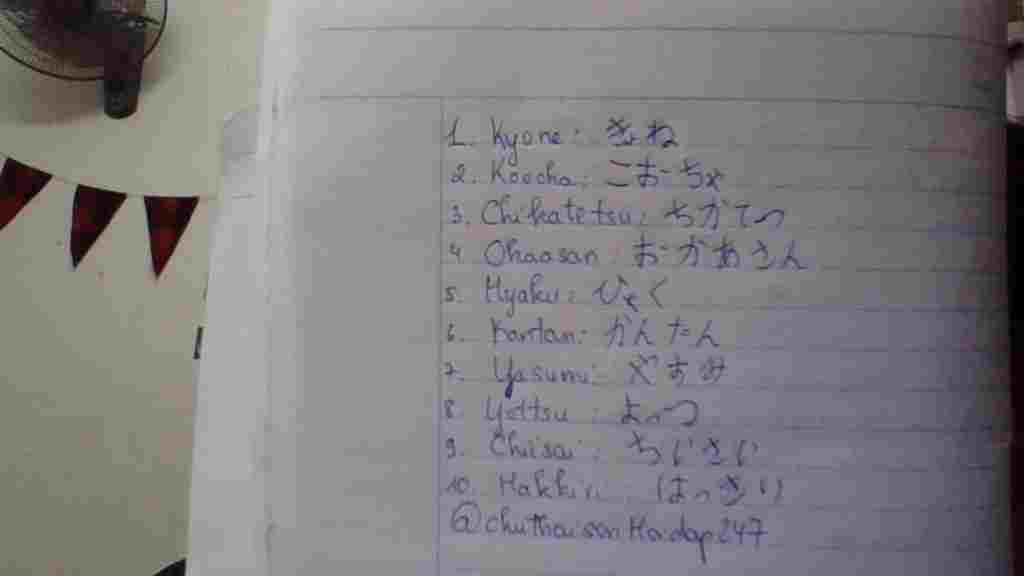 1. Kyone: きょね
2. Koocha: こおちゃ
3. Chikatetsu: ちかてつ
4. Okaasan: おかあさん
5. Hyaku: ひゃく
6. Kantan: かんたん
7. Yasumi: やすみ
8. Yottsu: よっつ
9. Chiisai: ちいさい
10. Hakkiri: はっきり
@chuthaisonHoidap247